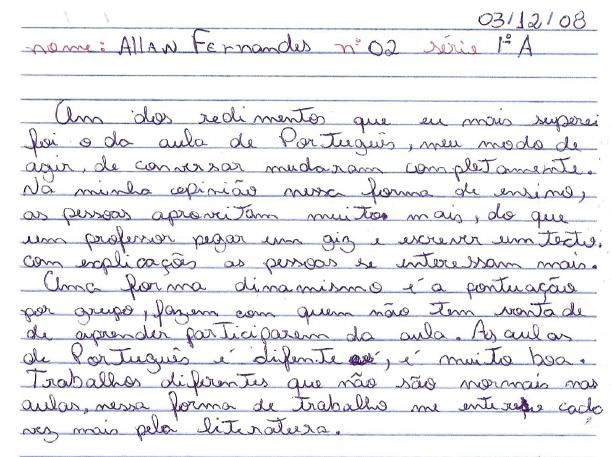 03/12/08
nome: Allan Fernandes nº 02 série 1º A
Um dos redimentos que eu mais superei
foi o da aula de Português, meu modo de
agir, de conversar mudaram completamente.
Na minha opinião nessa forma de ensino,
as pessoas aproveitam muito mais, do que
um professor pegar um giz e escrever um texto.
com explicações as pessoas se interessam mais.
Uma forma dinamismo é a pontuação
por grupo, fazem com quem não tem vontade
de aprender participarem da aula. As aulas
de Português é difente é, é muito boa.
Trabalhos diferentes que não são normais nas
aulas, nessa forma de trabalho me cada
vez mais pela literatura.